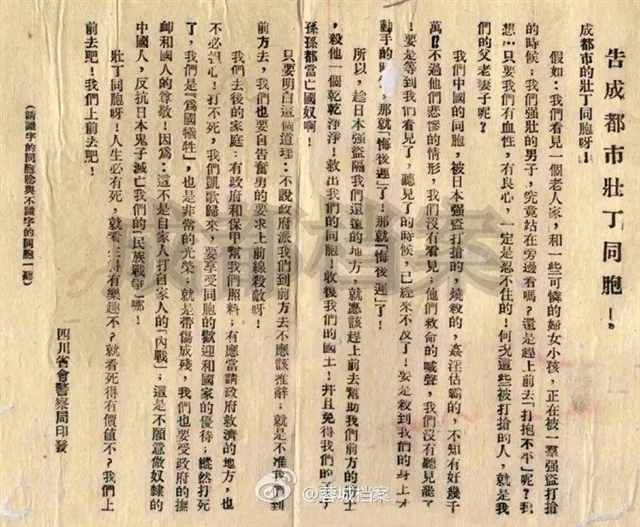 告成都市壯丁同胞！
成都市的壯丁同胞呀！
假如：我們看見一個老人家，和一些可憐的婦女小孩，正在被一羣强盜打搶
的時候；我們强壯的男子，究竟站在旁邊看嗎？還是趕上前去「打抱不平」呢？我
想…只要我們有血性，有良心，一定是忍不住的！何况這些被打搶的人，就是我
們的父老妻子呢？
我們中國的同胞，被日本强盜打搶的，燒殺的，姦淫估霸的，不知有好幾千
萬？不過他們悲慘的情形，我們沒有看見；他們救命的喊聲，我們沒有聽見罷了
！要是等到我們看見了，聽見了的時候，已經來不及了！要是殺到我們的身上才
動手的時，那就「悔後遲」了！那就「悔後遲」了！
所以，趁日本强盜隔我們還遠的地方，就應該趕上前去幫助我們前方的
，殺他一個乾乾淨淨！救出我們的同胞！收復我們的國土！并且免得我們的子子
孫孫都當亡國奴啊！
只要明白這個道理：不說政府派我們到前方去不應該推辭；就是不准我們到
前方去，我們也要自告奮勇的要求上前線殺敵呀！
我們去後的家庭：有政府和保甲幫我們照料；有應當請政府救濟的地方，也
不必担心！打不死，我們凱歌歸來，要享受同胞的歡迎和國家的優待；縱然打死
了，我們是「爲國犠牲」，也是非常的光榮；就是帶傷成殘，我們也要受政府的撫
卹和國人的尊敬！因爲：這不是自家人打自家人的「內戰」；這是不願意做奴隸的
中國人，反抗日本鬼子滅亡我們的「民族戰爭」哪！
壯丁同胞呀！人生必有死，就看生得有樂趣不？就看死得有價值不？我們上
前去吧！我們上前去吧！
四川省會警察局印發
（請識字的同胞唸與不識字的同胞一聽）
蓉城档案
@蓉城档案